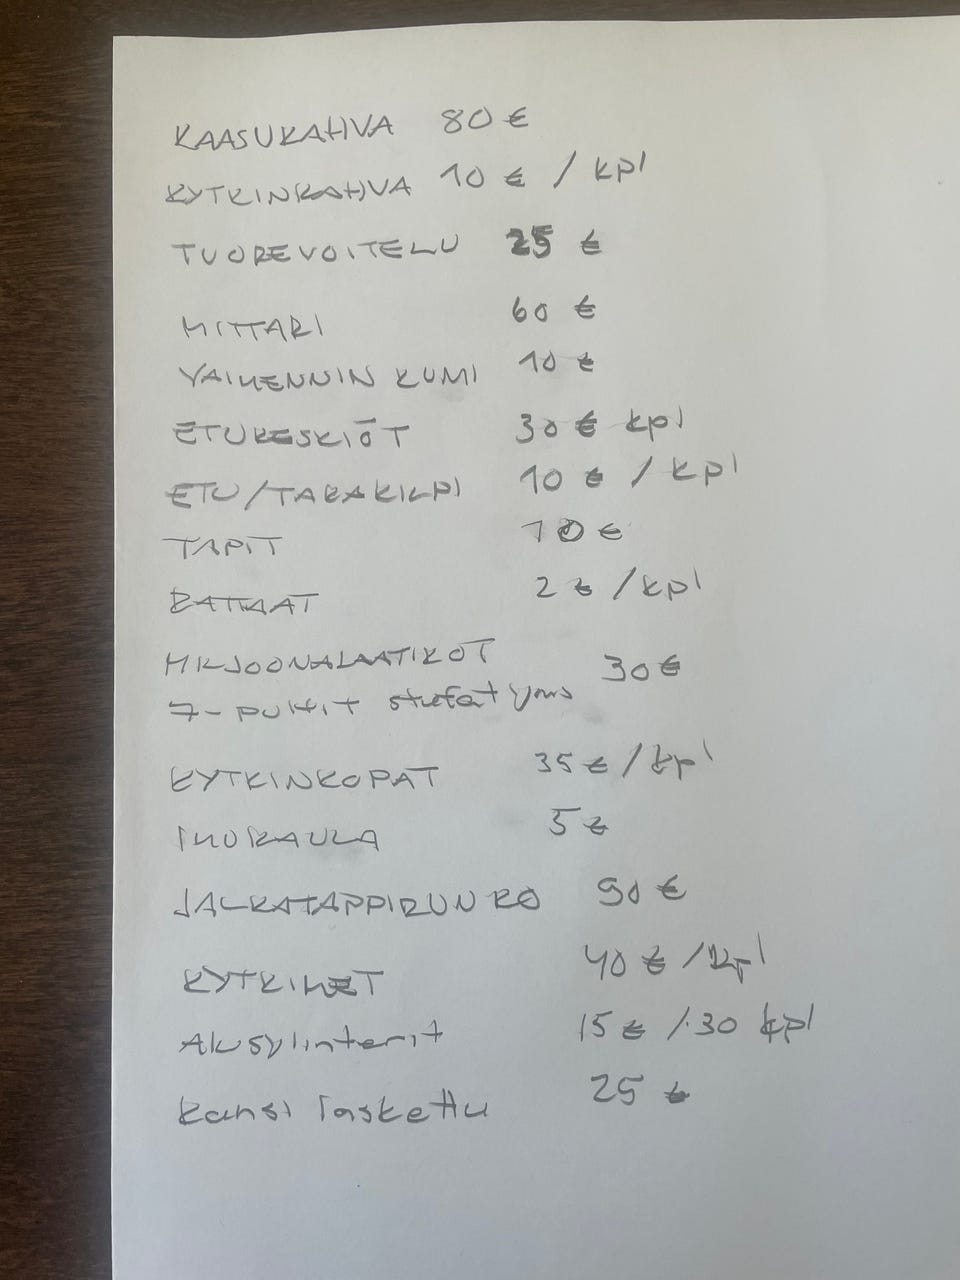 KAASUKAHVA 80 €
KYTKINKAHVA 10 € / kpl
TUOREVOITELU 25 €
MITTARI 60 €
VAIMENNIN KUMI 10 €
ETUKESKIÖT 30 € kpl
ETU/TAKAKILPI 10 € / kpl
TAPIT 10 €
RATTAAT 2 € /kpl
MILJOONALAATIKOT 30 €
7- PULTIT stefat yms
KYTKINKOPAT 35 € / kpl
IMUKAULA 5 €
JALKATAPPIRUNKO 90 €
KYTKIMET 40 € / kpl
Alusplinterit 15 € / 30 kpl
Kansi laskettu 25 €